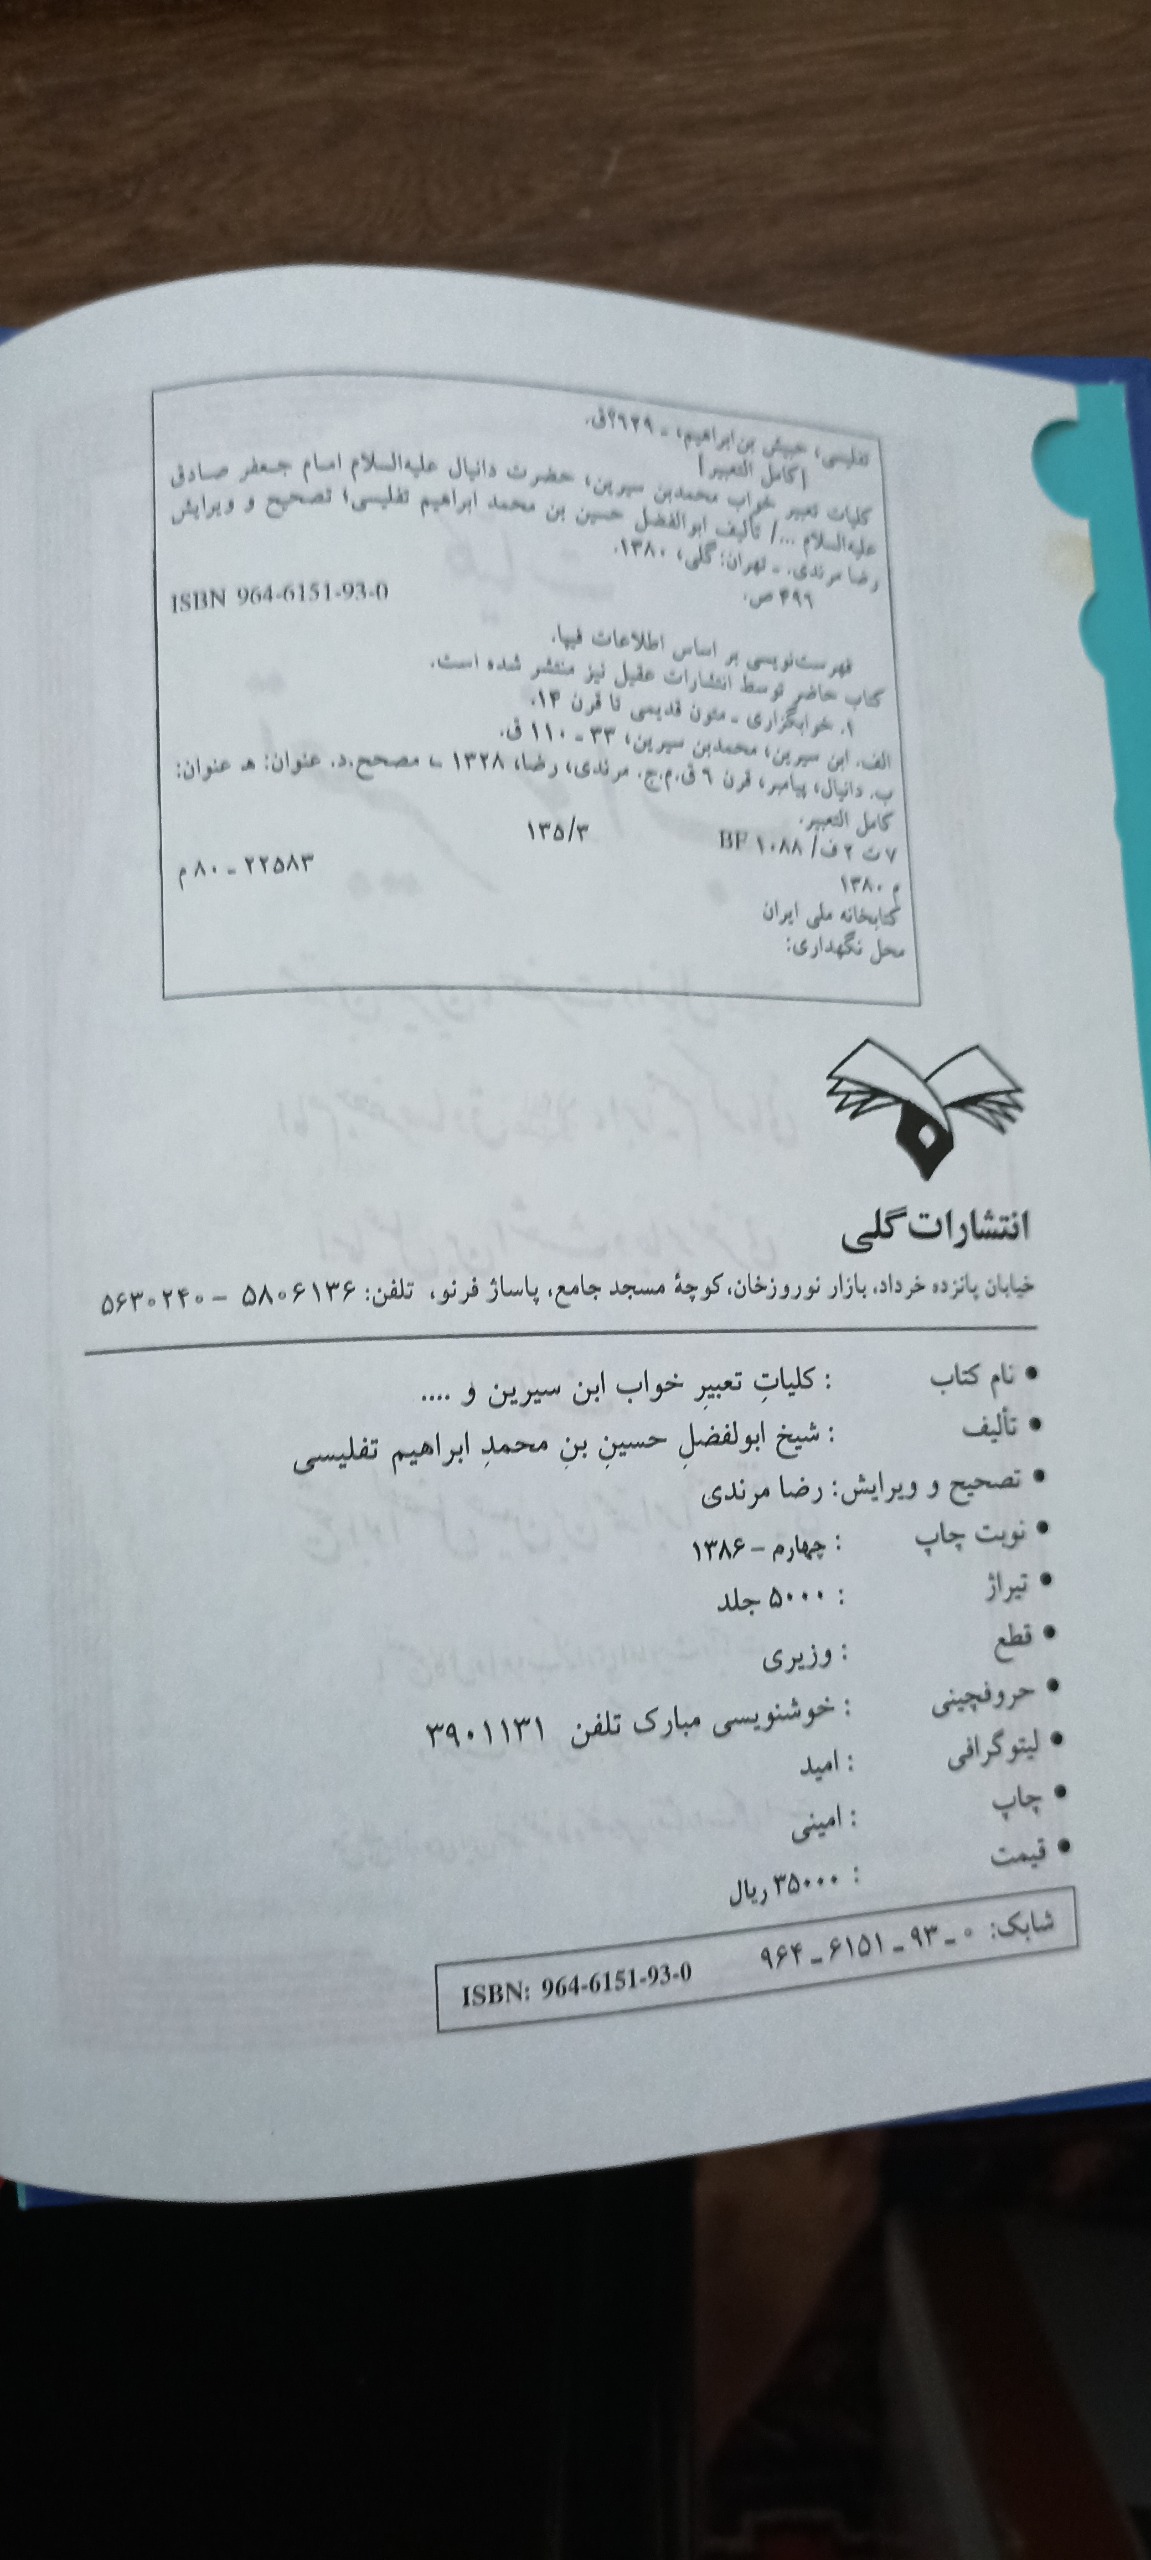 تفلیسی، حبیش بن‌ابراهیم، ـ ۶۲۹؟ق.
[کامل التعبیر]
کلیات تعبیر خواب محمدبن سیرین، حضرت دانیال علیه‌السلام امام جعفر صادق
علیه‌السلام .../ تألیف ابوالفضل حسین بن محمد ابراهیم تفلیسی؛ تصحیح و ویرایش
رضا مرندی. ـ تهران: گلی، ۱۳۸۰.
۴۹۶ ص. ISBN 964-6151-93-0
فهرست‌نویسی بر اساس اطلاعات فیپا.
کتاب حاضر توسط انتشارات عقیل نیز منتشر شده است.
۱. خوابگزاری ـ متون قدیمی تا قرن ۱۴.
الف. ابن سیرین، محمدبن سیرین، ۳۳ ـ ۱۱۰ ق.
ب. دانیال، پیامبر، قرن ۶ ق.م.ج. مرندی، رضا، ۱۳۲۸ ـ، مصحح.د. عنوان: هـ عنوان:
کامل التعبیر.
۷ ت ۲ ف/ BF ۱۰۸۸ ۱۳۵/۳
م ۱۳۸۰ ۲۲۵۸۳ ـ ۸۰ م
کتابخانه ملی ایران
محل نگهداری:
انتشارات گلی
خیابان پانزده خرداد، بازار نوروزخان، کوچهٔ مسجد جامع، پاساژ فرنو، تلفن: ۵۸۰۶۱۳۶ – ۵۶۳۰۲۴۰
• نام کتاب : کلیاتِ تعبیرِ خواب ابن سیرین و ....
• تألیف : شیخ ابولفضلِ حسینِ بنِ محمدِ ابراهیم تفلیسی
• تصحیح و ویرایش: رضا مرندی
• نوبت چاپ : چهارم – ۱۳۸۶
• تیراژ : ۵۰۰۰ جلد
• قطع : وزیری
• حروفچینی : خوشنویسی مبارک تلفن ۳۹۰۱۱۳۱
• لیتوگرافی : امید
• چاپ : امینی
• قیمت : ۳۵۰۰۰ ریال
شابک: ۰ ـ ۹۳ ـ ۶۱۵۱ ـ ۹۶۴ ISBN: 964-6151-93-0